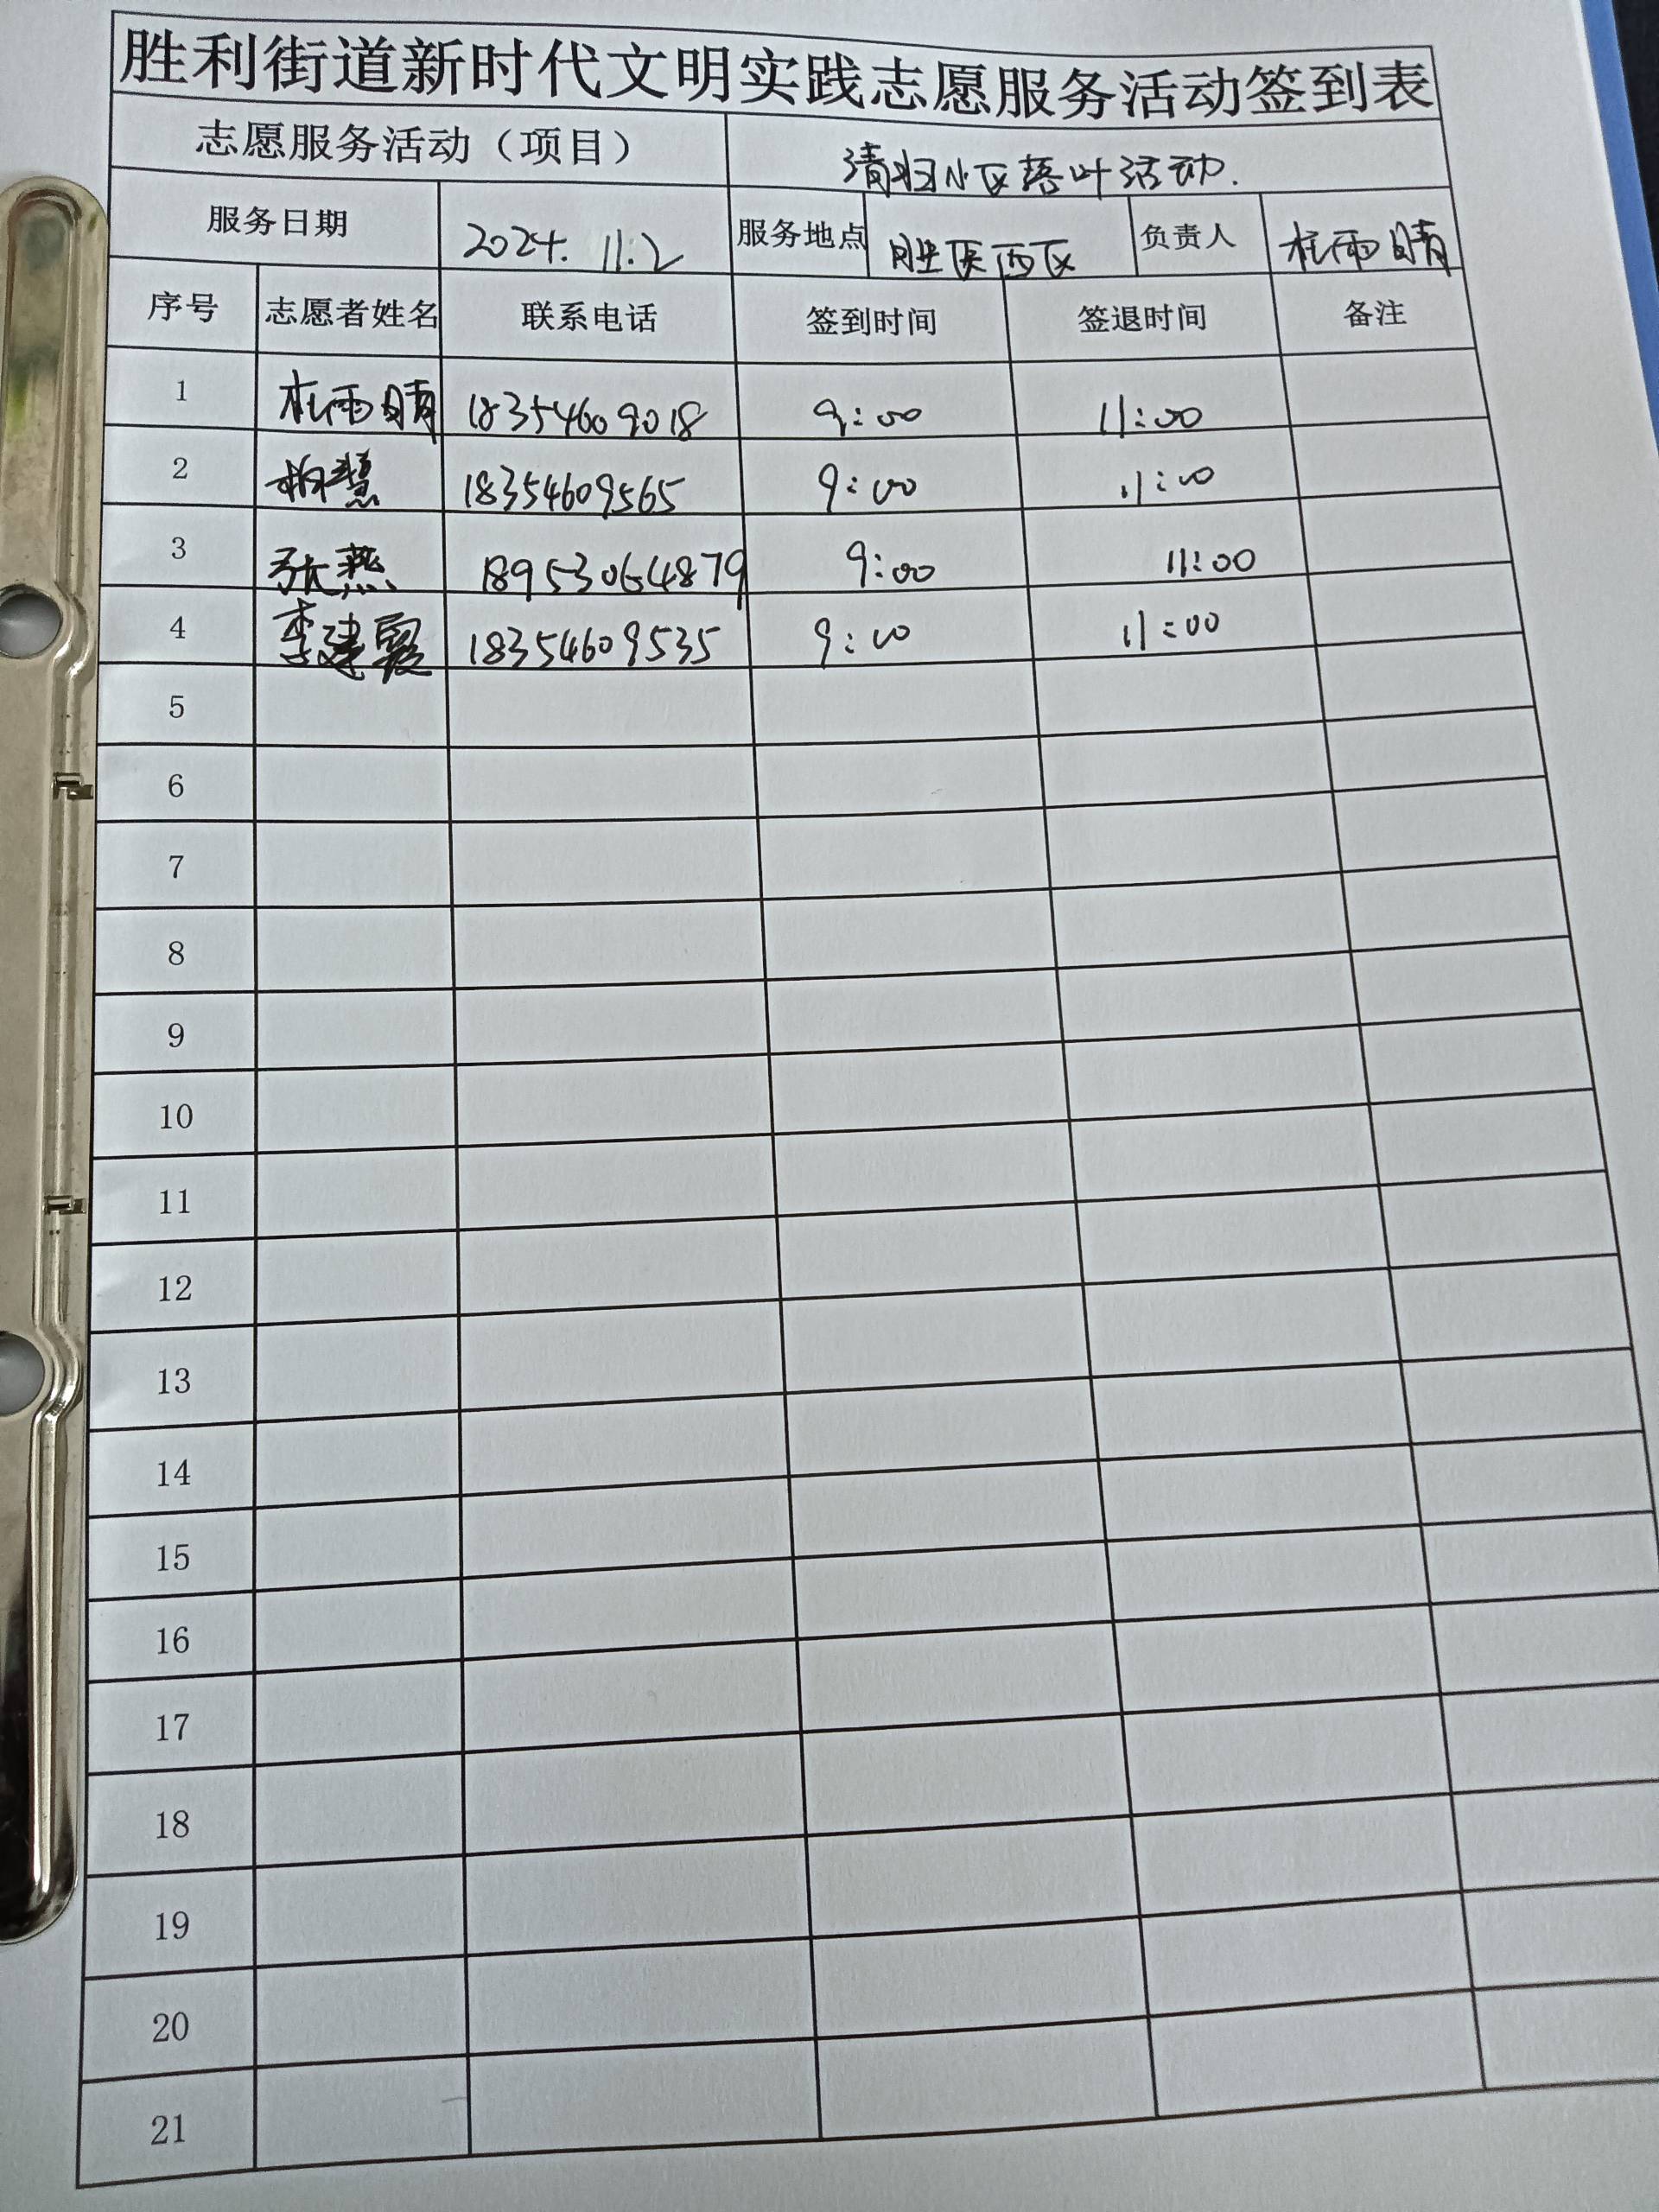 胜利街道新时代文明实践志愿服务活动签到表
志愿服务活动（项目） 清扫小区落叶活动.
服务日期 2024. 11.2 服务地点 胜医西区 负责人 杜雨晴
序号 志愿者姓名 联系电话 签到时间 签退时间 备注
1 杜雨晴 18354609018 9:00 11:00
2 18354609565 9:00 11:00
3 张燕 18953064879 9:00 11:00
4 李建霞 18354609535 9:00 11:00
5
6
7
8
9
10
11
12
13
14
15
16
17
18
19
20
21